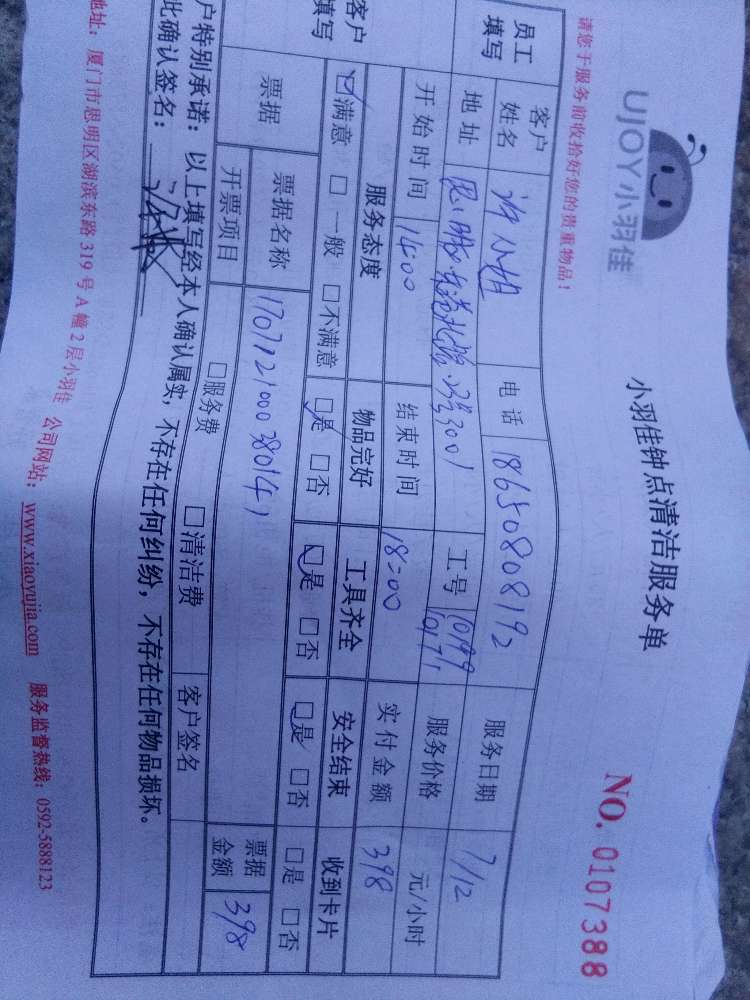 UJOY小羽佳
小羽佳钟点清洁服务单
NO. 0107388
请您于服务前收拾好您的贵重物品！
员工填写
客户姓名 许小姐 电话 18650808192 服务日期 7/12
地址 思明 23号3001 工号 10199 服务价格 元/小时
开始时间 14:00 结束时间 18:00 实付金额 398
客户填写
服务态度 物品完好 工具齐全 安全结束 收到卡片
☑满意 □一般 □不满意 ☑是 □否 ☑是 □否 ☑是 □否 □是 □否
票据 票据名称 1707121000380141 票据金额 398
开票项目 □服务费 □清洁费 客户签名
户特别承诺：以上填写经本人确认属实，不存在任何纠纷，不存在任何物品损坏。
此确认签名：
地址：厦门市思明区湖滨东路319号A幢2层小羽佳 公司网站：www.xiaoyujia.com 服务监督热线：0592-5888123